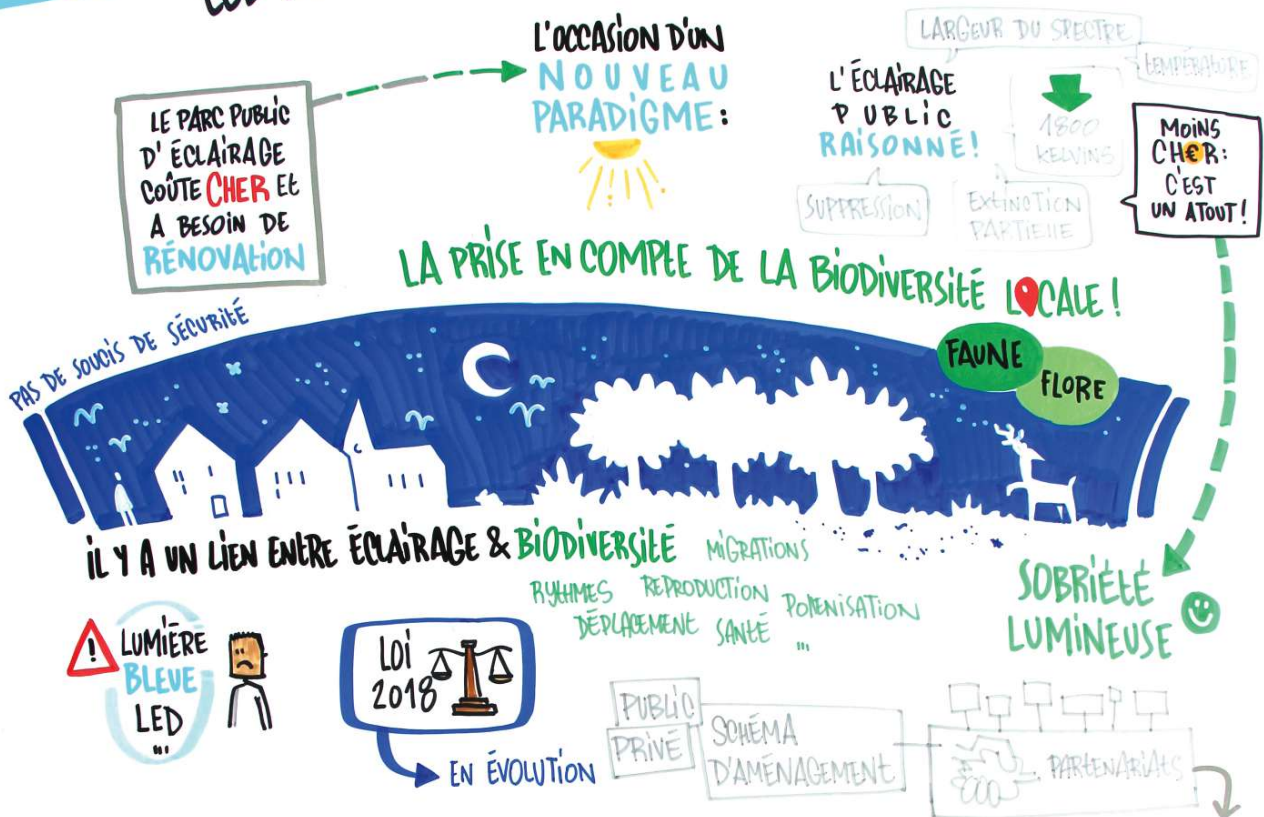 L'OCCASION D'UN
NOUVEAU
PARADIGME :
LE PARC PUBLIC
D'ÉCLAIRAGE
COÛTE CHER ET
A BESOIN DE
RÉNOVATION
L'ÉCLAIRAGE
PUBLIC
RAISONNÉ !
LARGEUR DU SPECTRE
TEMPÉRATURE
1800
KELVINS
SUPPRESSION
EXTINCTION
PARTIELLE
MOINS
CH€R :
C'EST
UN ATOUT !
LA PRISE EN COMPTE DE LA BIODIVERSITÉ LOCALE !
PAS DE SOUCIS DE SÉCURITÉ
FAUNE
FLORE
IL Y A UN LIEN ENTRE ÉCLAIRAGE & BIODIVERSITÉ
MIGRATIONS
RYTHMES REPRODUCTION POLLENISATION
DÉPLACEMENT SANTÉ ...
SOBRIÉTÉ
LUMINEUSE
! LUMIÈRE
BLEUE
LED
...
LOI
2018
EN ÉVOLUTION
PUBLIC
PRIVÉ
SCHÉMA
D'AMÉNAGEMENT
PARTENARIATS